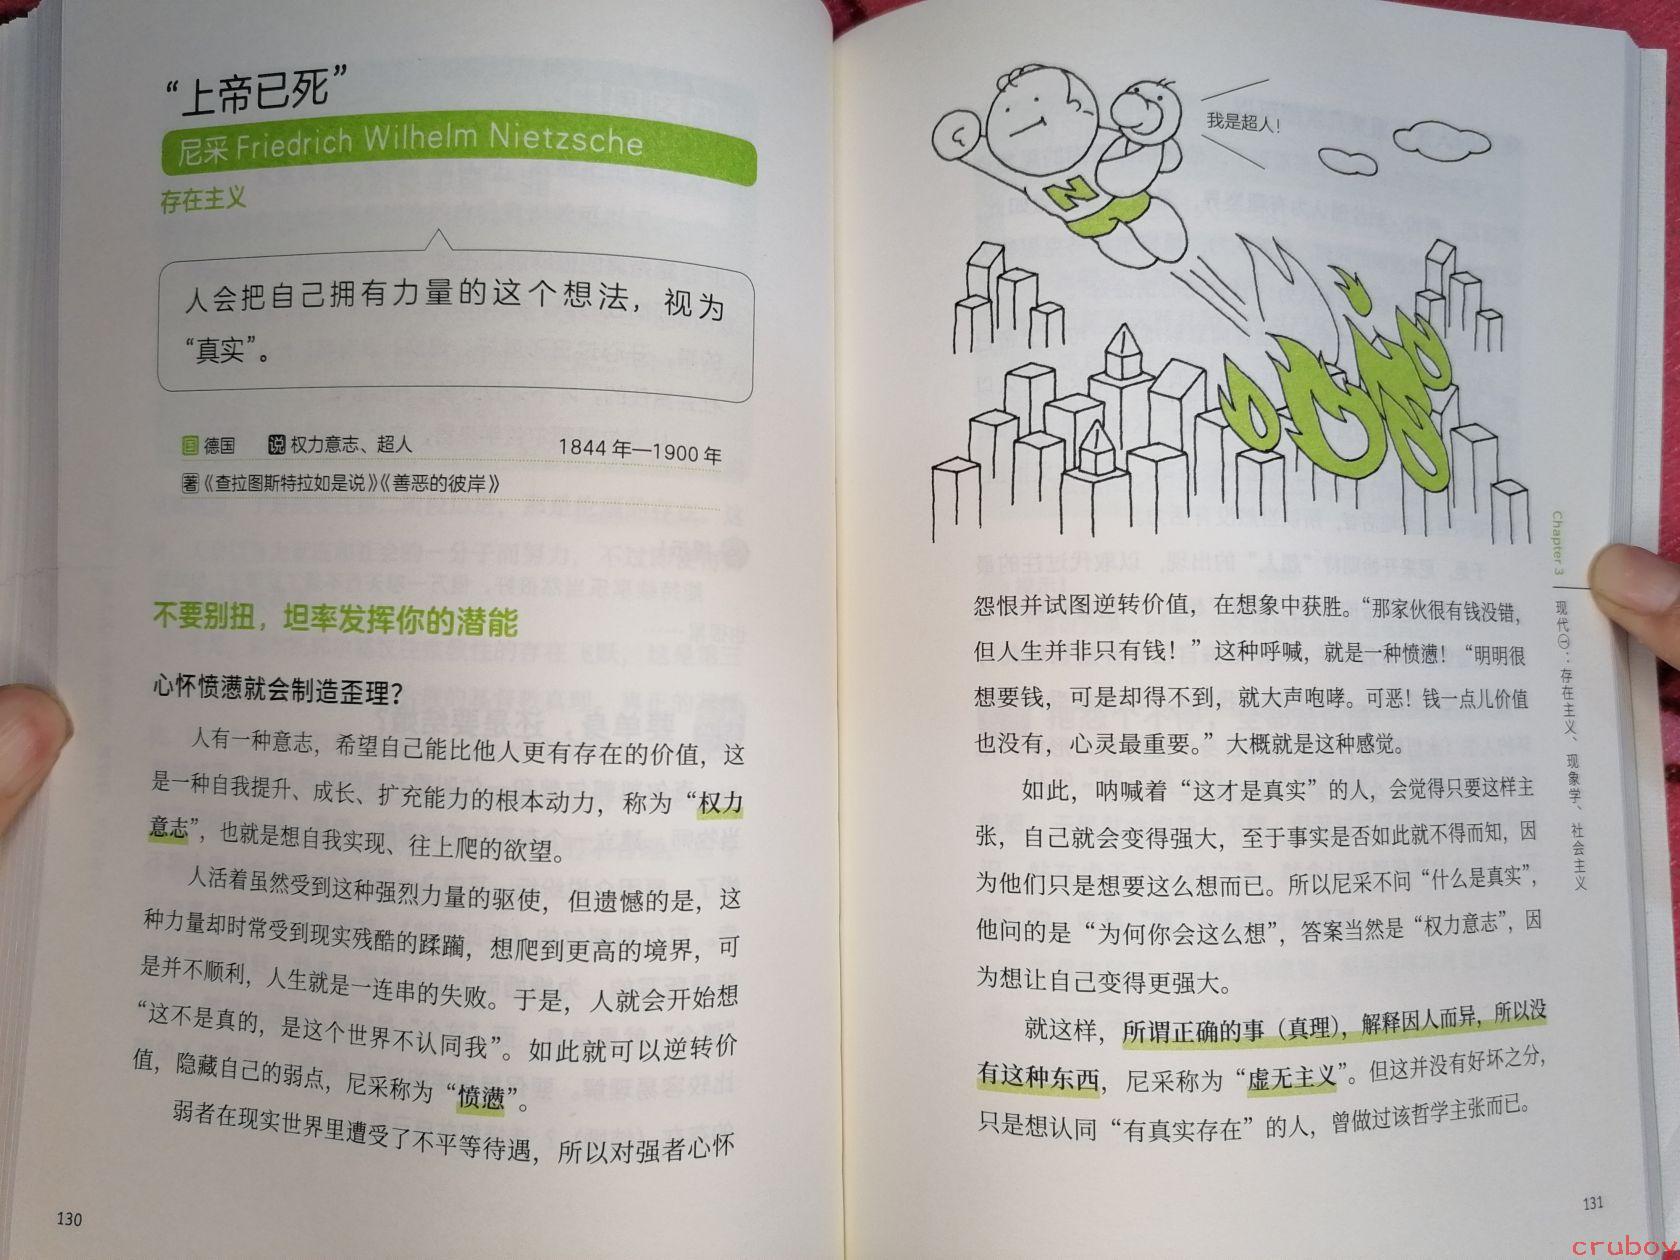 “上帝已死”
尼采 Friedrich Wilhelm Nietzsche
存在主义
人会把自己拥有力量的这个想法，视为
“真实”。
国 德国 说 权力意志、超人 1844 年—1900 年
著《查拉图斯特拉如是说》《善恶的彼岸》
不要别扭，坦率发挥你的潜能
心怀愤懑就会制造歪理？
人有一种意志，希望自己能比他人更有存在的价值，这
是一种自我提升、成长、扩充能力的根本动力，称为“权力
意志”，也就是想自我实现、往上爬的欲望。
人活着虽然受到这种强烈力量的驱使，但遗憾的是，这
种力量却时常受到现实残酷的蹂躏，想爬到更高的境界，可
是并不顺利，人生就是一连串的失败。于是，人就会开始想
“这不是真的，是这个世界不认同我”。如此就可以逆转价
值，隐藏自己的弱点，尼采称为“愤懑”。
弱者在现实世界里遭受了不平等待遇，所以对强者心怀
130
我是超人！
Z
怨恨并试图逆转价值，在想象中获胜。“那家伙很有钱没错，
但人生并非只有钱！”这种呼喊，就是一种愤懑！“明明很
想要钱，可是却得不到，就大声咆哮。可恶！钱一点儿价值
也没有，心灵最重要。”大概就是这种感觉。
如此，呐喊着“这才是真实”的人，会觉得只要这样主
张，自己就会变得强大，至于事实是否如此就不得而知，因
为他们只是想要这么想而已。所以尼采不问“什么是真实”，
他问的是“为何你会这么想”，答案当然是“权力意志”，因
为想让自己变得更强大。
就这样，所谓正确的事（真理），解释因人而异，所以没
有这种东西，尼采称为“虚无主义”。但这并没有好坏之分，
只是想认同“有真实存在”的人，曾做过该哲学主张而已。
Chapter 3
现代①：存在主义、现象学、社会主义
131
cruboy